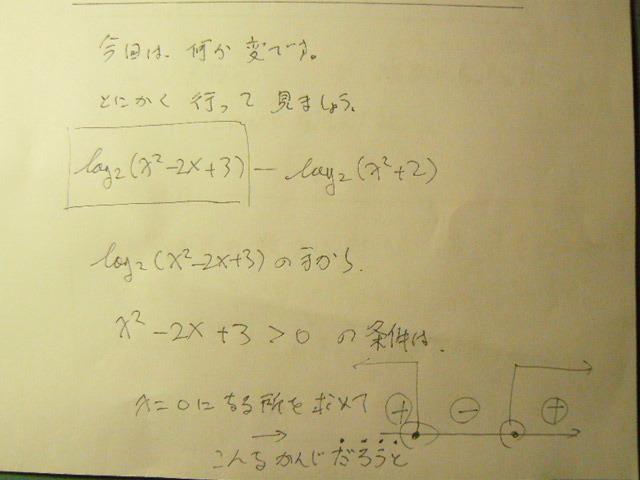 今回は、何か変です。
とにかく行って見ましょう。
log₂(x²-2x+3) - log₂(x²+2)
log₂(x²-2x+3)の方から、
x²-2x+3>0 の条件は、
x=0になる所を求めて
+ - +
→
こんなかんじだろうと